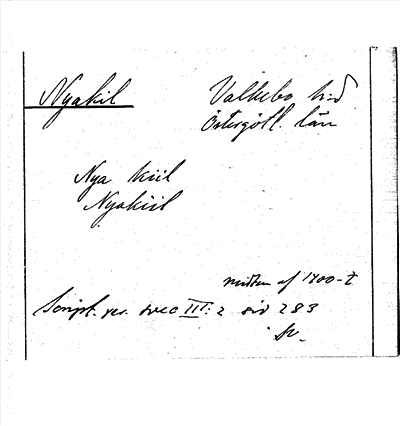 Nyakil
Valkebo hd
Östergötl. län
Nya kiil
Nyakiil
mitten af 1400-t
Script. rer. svec III: 2 sid 283